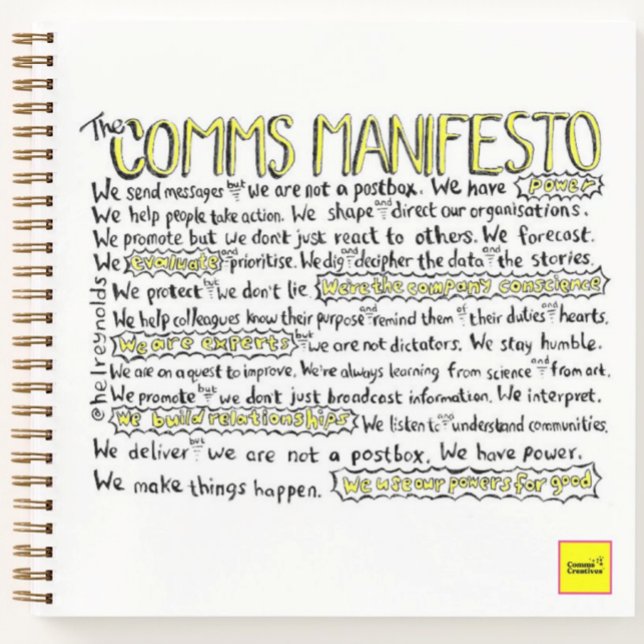 The COMMS MANIFESTO
We send messages but we are not a postbox. We have power
We help people take action. We shape and direct our organisations.
We promote but we don't just react to others. We forecast.
We evaluate and prioritise. We dig and decipher the data and the stories.
We protect but we don't lie. We're the company conscience
We help colleagues know their purpose and remind them of their duties and hearts.
We are experts but we are not dictators. We stay humble.
We are on a quest to improve. We're always learning from science and from art.
We promote but we don't just broadcast information. We interpret.
We build relationships We listen to and understand communities.
We deliver but we are not a postbox. We have power.
We make things happen. We use our powers for good
@helreynolds
Comms
Creatives